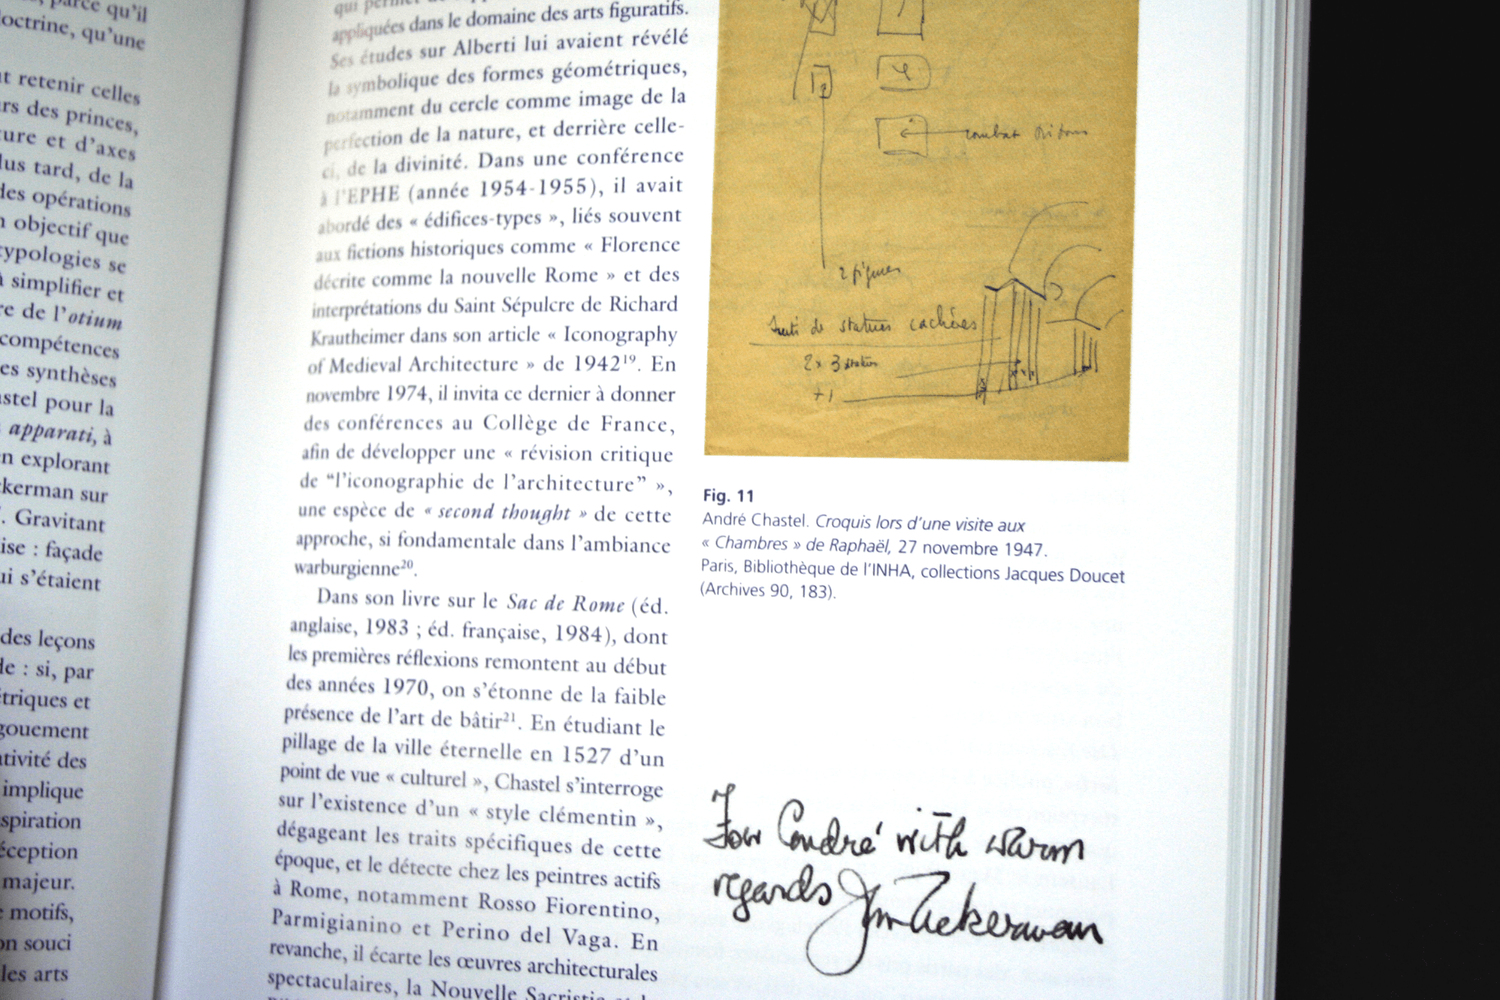 parce qu'il
doctrine, qu'une
t retenir celles
rs des princes,
ture et d'axes
lus tard, de la
des opérations
n objectif que
typologies se
à simplifier et
re de l'otium
compétences
es synthèses
astel pour la
apparati, à
n explorant
kerman sur
. Gravitant
ise : façade
ui s'étaient
des leçons
le : si, par
triques et
gouement
ativité des
implique
spiration
éception
majeur.
motifs,
on souci
les arts
appliquées dans le domaine des arts figuratifs.
Ses études sur Alberti lui avaient révélé
la symbolique des formes géométriques,
notamment du cercle comme image de la
perfection de la nature, et derrière celle-
ci, de la divinité. Dans une conférence
à l'EPHE (année 1954-1955), il avait
abordé des « édifices-types », liés souvent
aux fictions historiques comme « Florence
décrite comme la nouvelle Rome » et des
interprétations du Saint Sépulcre de Richard
Krautheimer dans son article « Iconography
of Medieval Architecture » de 1942¹⁹. En
novembre 1974, il invita ce dernier à donner
des conférences au Collège de France,
afin de développer une « révision critique
de “l'iconographie de l'architecture” »,
une espèce de « second thought » de cette
approche, si fondamentale dans l'ambiance
warburgienne²⁰.
Dans son livre sur le Sac de Rome (éd.
anglaise, 1983 ; éd. française, 1984), dont
les premières réflexions remontent au début
des années 1970, on s'étonne de la faible
présence de l'art de bâtir²¹. En étudiant le
pillage de la ville éternelle en 1527 d'un
point de vue « culturel », Chastel s'interroge
sur l'existence d'un « style clémentin »,
dégageant les traits spécifiques de cette
époque, et le détecte chez les peintres actifs
à Rome, notamment Rosso Fiorentino,
Parmigianino et Perino del Vaga. En
revanche, il écarte les œuvres architecturales
spectaculaires, la Nouvelle Sacristie
combat
2 figures
de statues cachées
2 x 3
+1
Fig. 11
André Chastel. Croquis lors d'une visite aux
« Chambres » de Raphaël, 27 novembre 1947.
Paris, Bibliothèque de l'INHA, collections Jacques Doucet
(Archives 90, 183).
with warm
regards Jim Ackerman